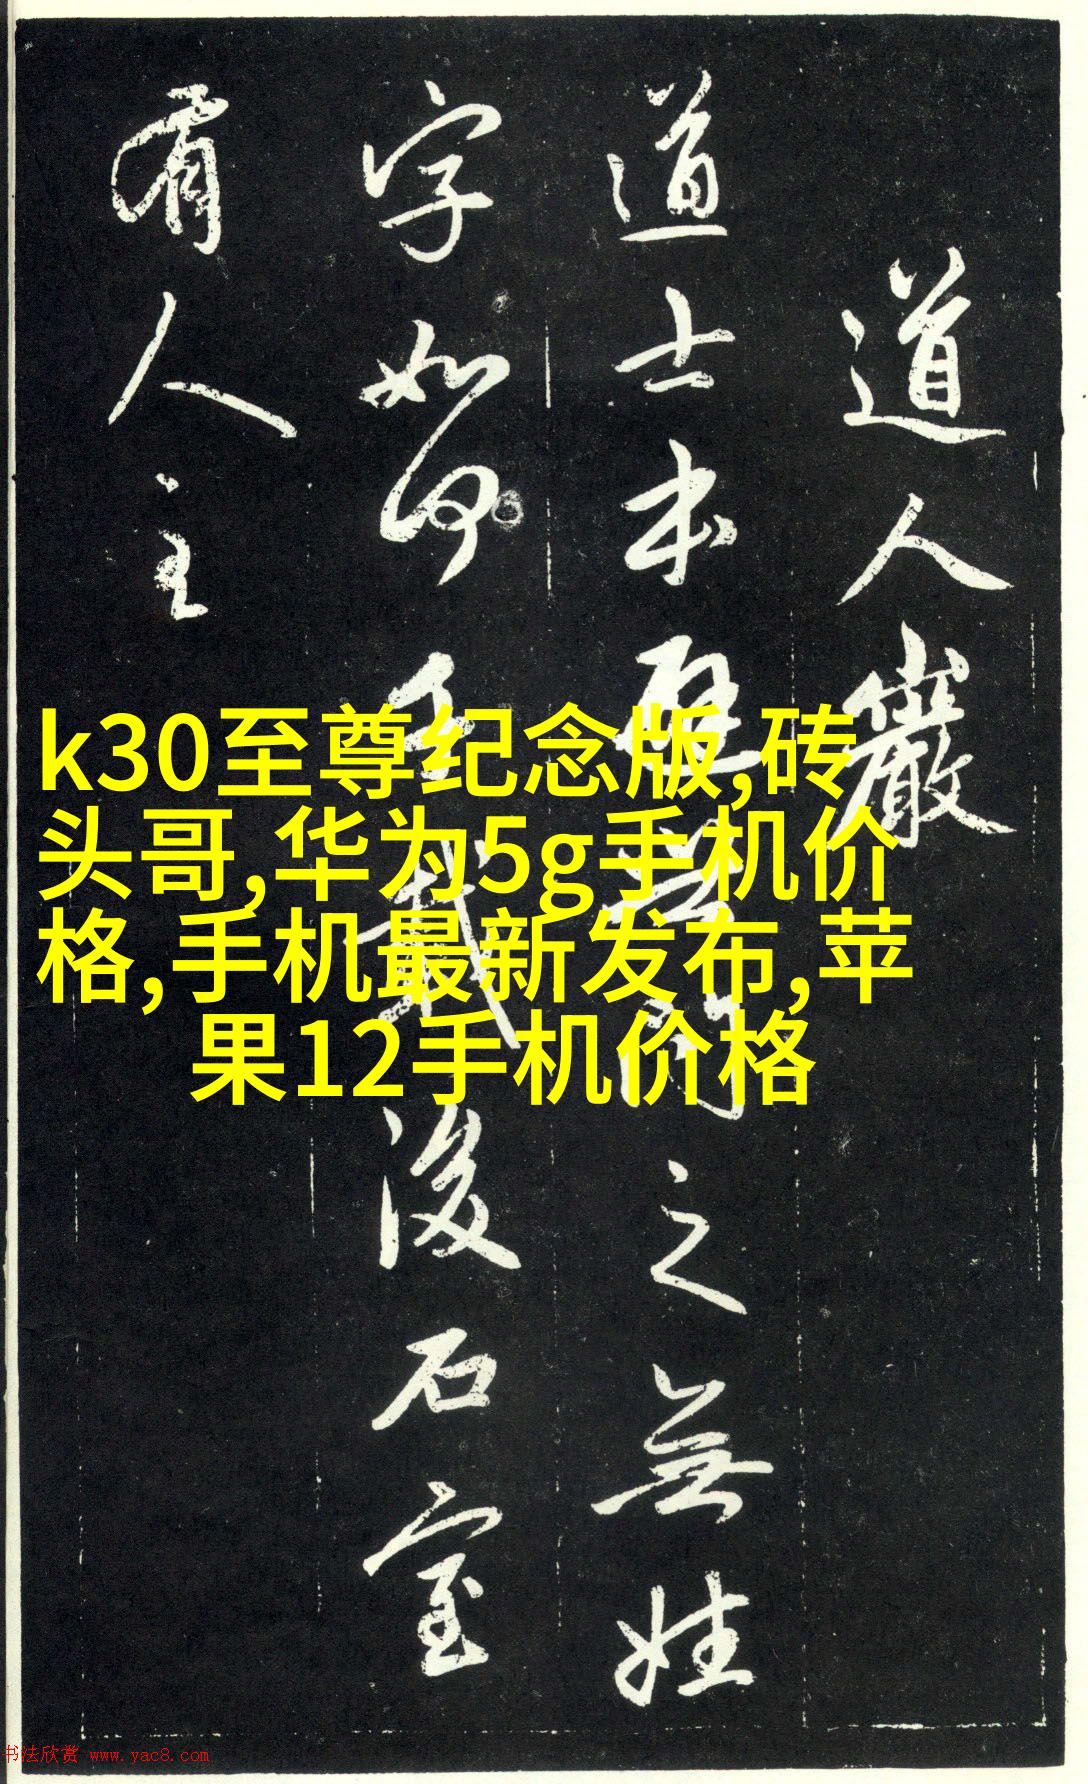 道人巖
道士本之無姓
字如何千載後石室
有人主
k30至尊纪念版,砖
头哥,华为5g手机价
格,手机最新发布,苹
果12手机价格
书法欣赏 www.yac8.com